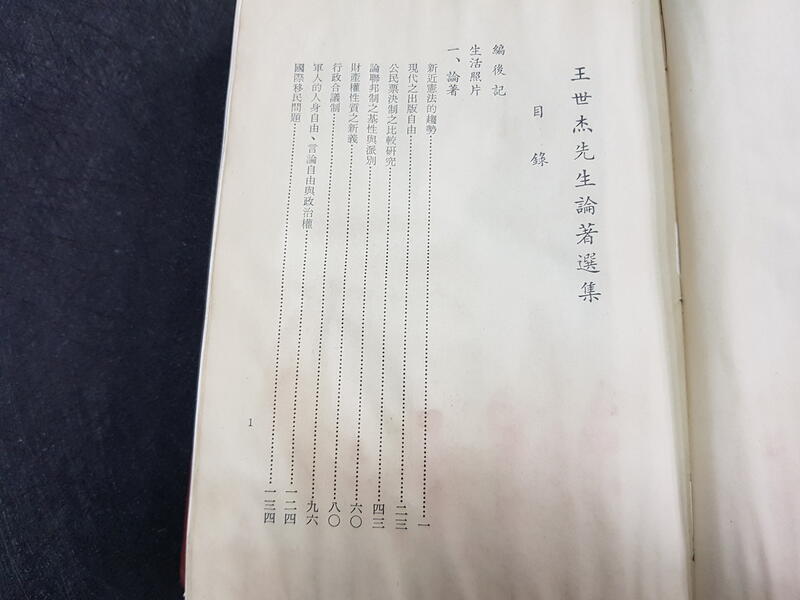 王世杰先生論著選集
目錄
編後記
生活照片
一、論著
新近憲法的趨勢……一
現代之出版自由……二三
公民票決制之比較研究……四三
論聯邦制之基性與派別……六〇
財產權性質之新義……八〇
行政合議制……九六
軍人的人身自由、言論自由與政治權……一二四
國際移民問題……一三四
1